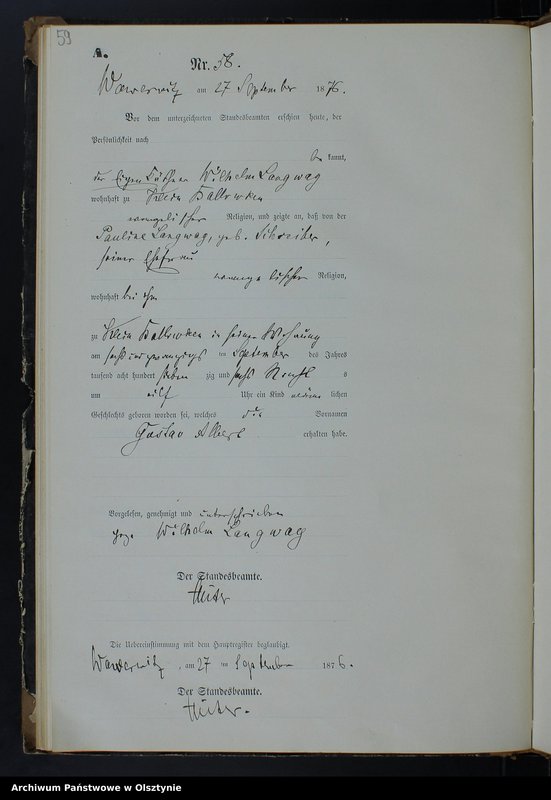 59
A.
Nr. 58.
Wawerwitz am 27 September 1876.
Vor dem unterzeichneten Standesbeamten erschien heute, der
Persönlichkeit nach
be kannt,
der Eigenkäthner Wilhelm Langwag
wohnhaft zu Klein
evangelischer Religion, und zeigte an, daß von der
Pauline Langwag, geb. Schreiber,
seiner Ehefrau
evangelischer Religion,
wohnhaft bei ihm
zu Klein in seiner Wohnung
am sechsundzwanzigsten ten September des Jahres
tausend acht hundert sieben zig und sechs Nachts
um elf Uhr ein Kind männ lichen
Geschlechts geboren worden sei, welches die Vornamen
Gustav Albert erhalten habe.
Vorgelesen, genehmigt und unterschrieben
gez. Wilhelm Langwag
Der Standesbeamte.
Hüter
Die Uebereinstimmung mit dem Hauptregister beglaubigt.
Wawerwitz, am 27 ten September 1876.
Der Standesbeamte.
Hüter.
Archiwum Państwowe w Olsztynie